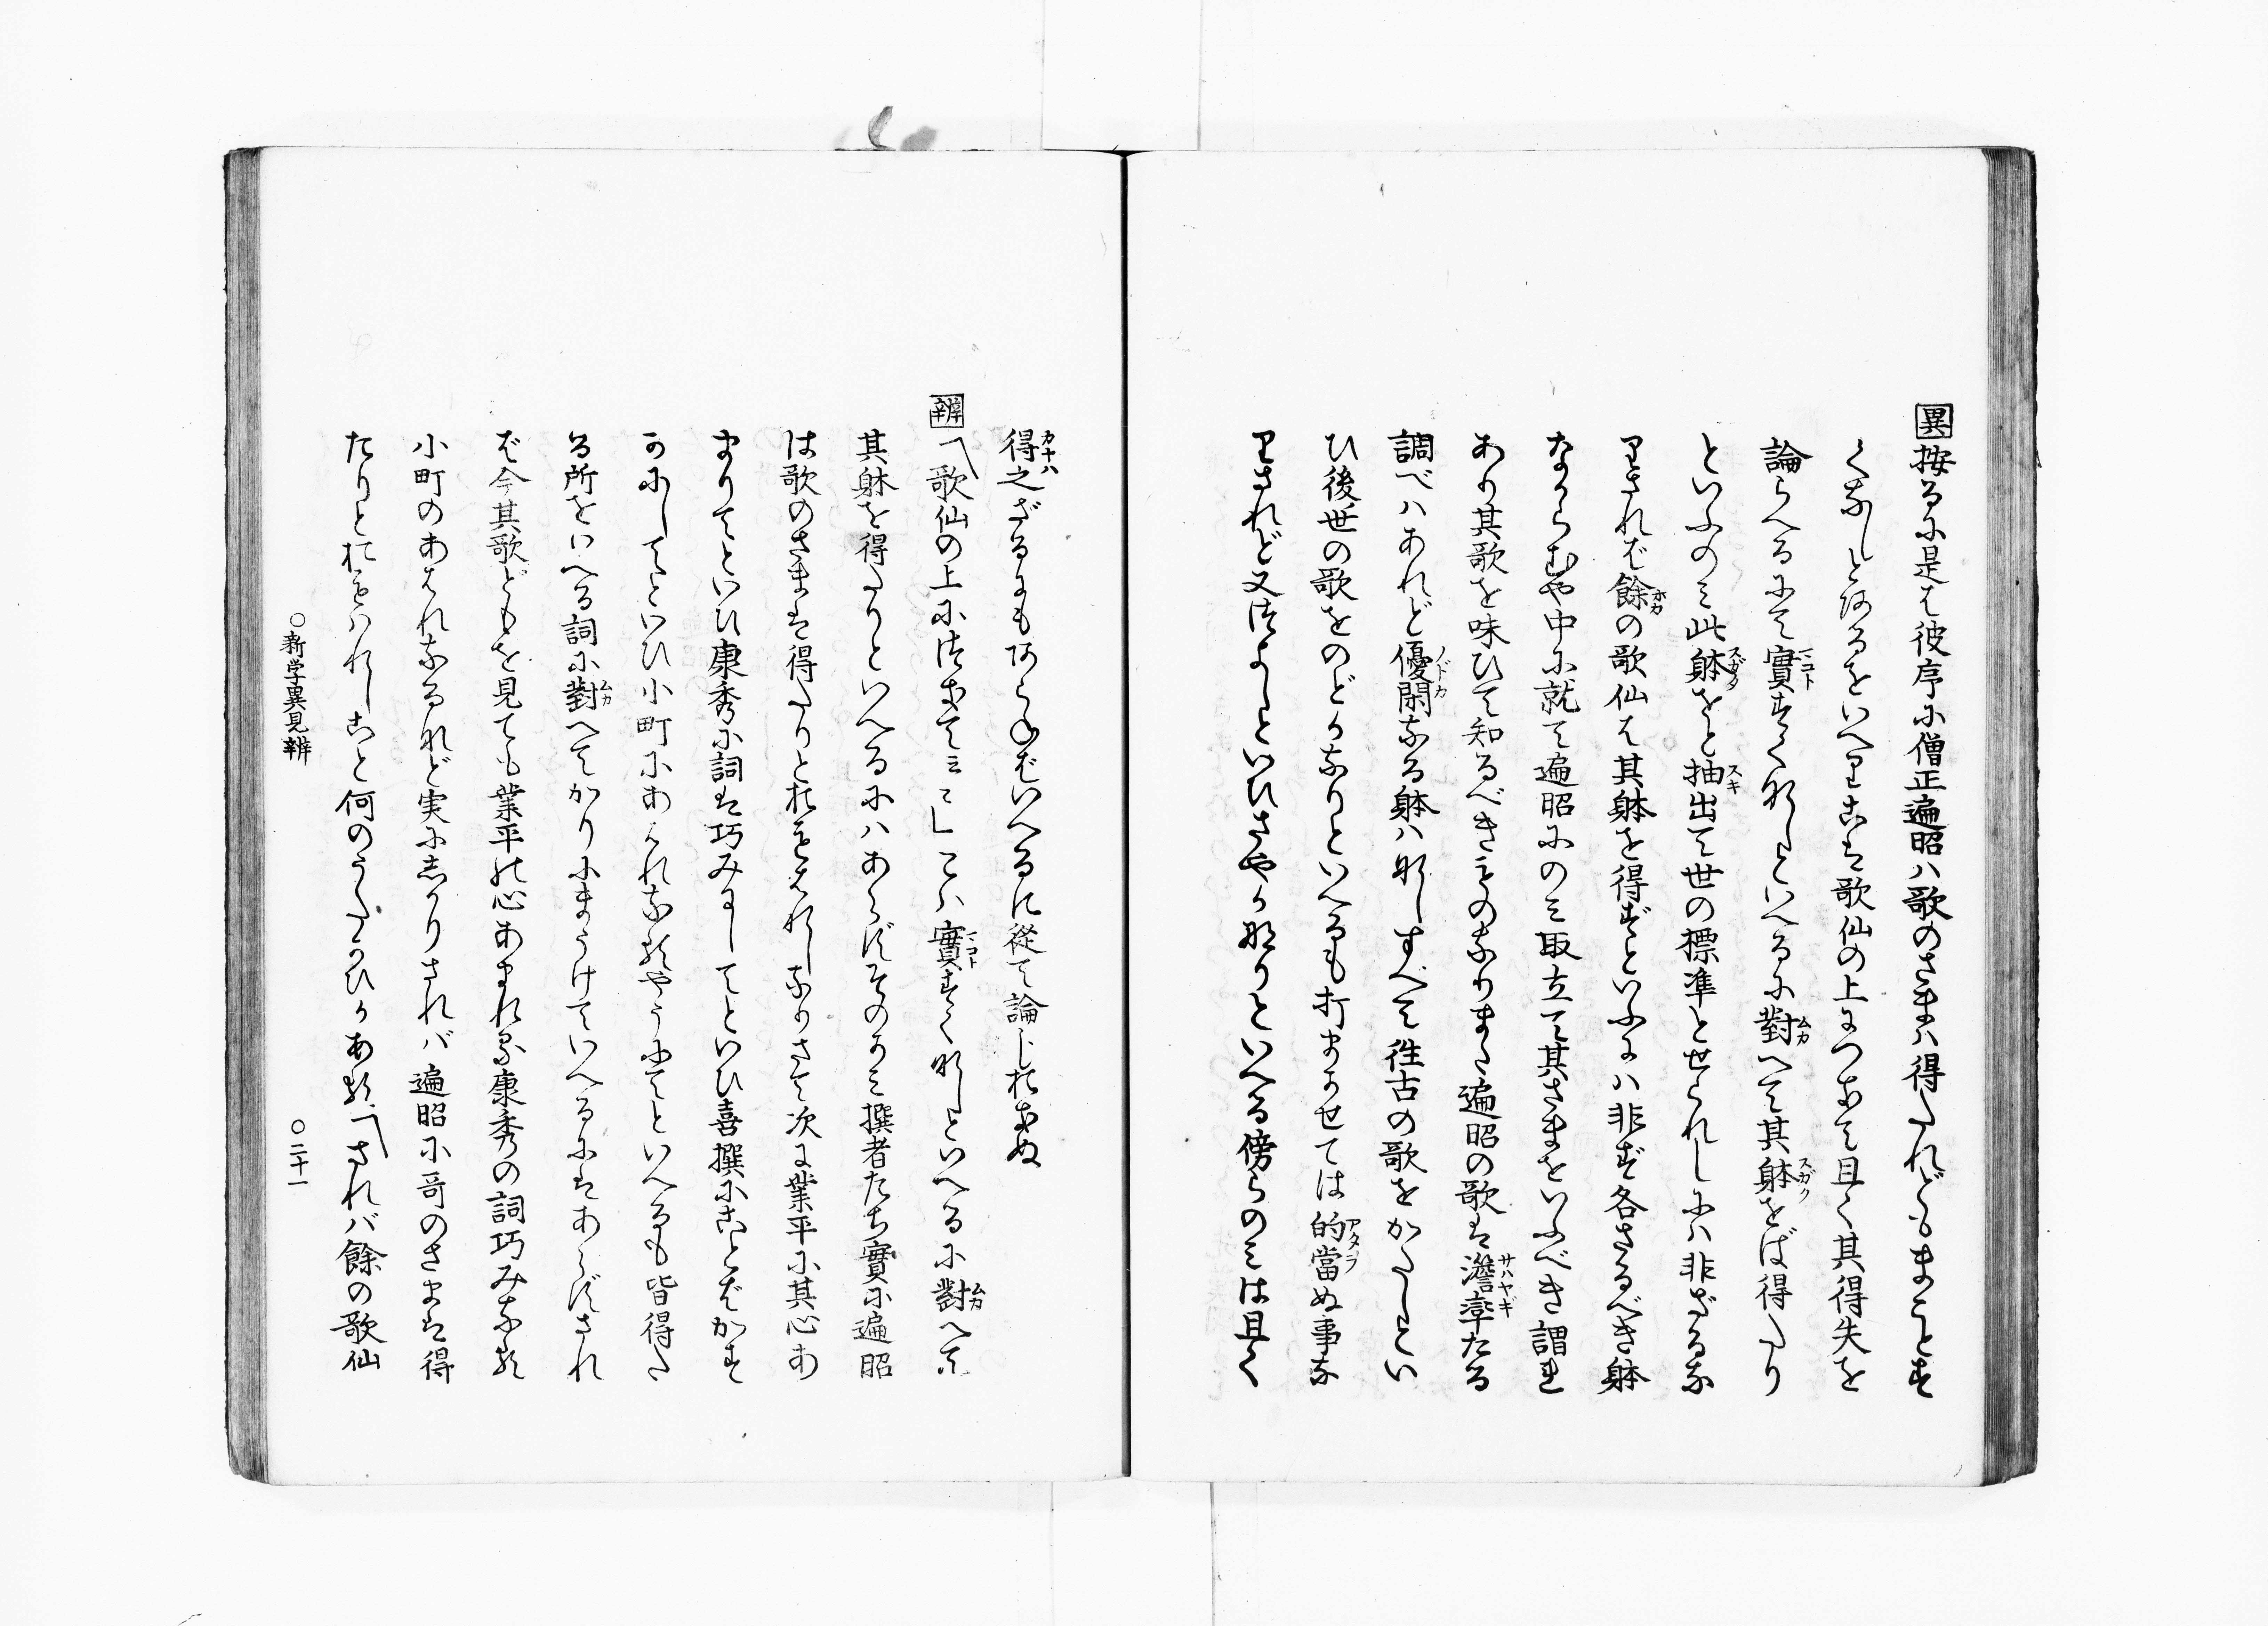 異 按るに是は彼序に僧正遍昭ハ歌のさまハ得たれどもまことす
くなしとあるをいへりこは歌仙の上につきて且く其得失を
論らへるにて實すくなしといへるに對へて其躰をば得たり
といふのミ此躰をと抽出て世の標準と世られしにハ非ざるな
りされば餘の歌仙は其躰を得ずといふにハ非ず各さるべき躰
なからむや中に就て遍昭にのミ取立て其さまをいふべき謂れ
あり其歌を味ひて知るべきものなりまた遍昭の歌は澹率たる
調べハあれど優閑なる躰ハなしすべて徃古の歌をかたしとい
ひ後世の歌をのどかなりといへるも打まかせては的當ぬ事な
りされど又つよしといひさやかなりといへる傍らのミは且く
得之ざるにもあらねばいへるに從て論じおきぬ
辨 歌仙の上につきて云々」こハ實すくなしといへるに對へて
其躰を得たりといへるにハあらずそのかミ撰者たち實に遍昭
は歌のさまは得たりとおもはれしなりさて次に業平は其心あ
まりてといひ康秀は詞は巧みにしてといひ喜撰はことばかす
かにしてといひ小町はあはれなるやうにてといへるも皆得た
る所をいへる詞に對へてかりにまうけていへるにはあらずされ
ば今其歌どもを見ても業平の心あまれる康秀の詞巧みなる
小町のあはれなるなど実にしかりされバ遍昭は哥のさまは得
たりとおもハれしこと何のうたかひかあるされバ餘の歌仙
○新学異見辨
○二十一